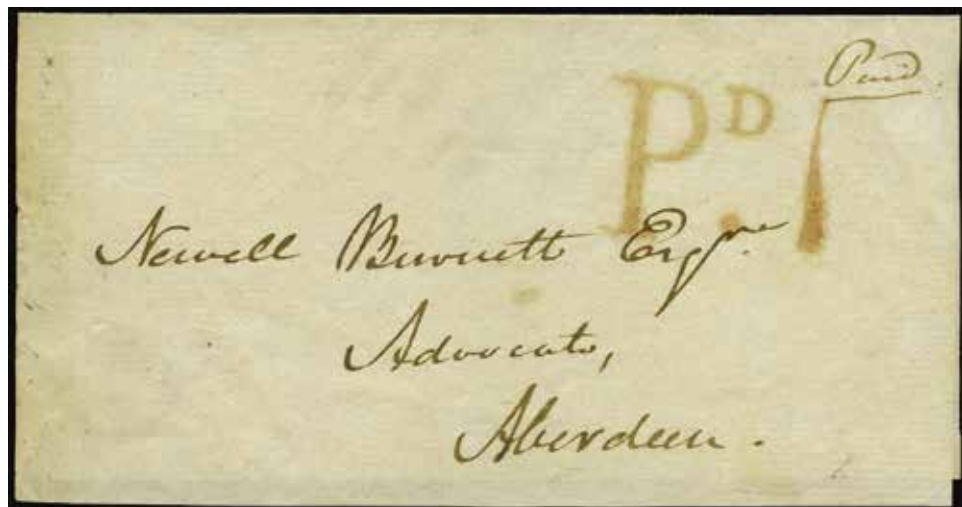 Paid
PD. 1
Newell Burnett Esqre
Advocate,
Aberdeen.